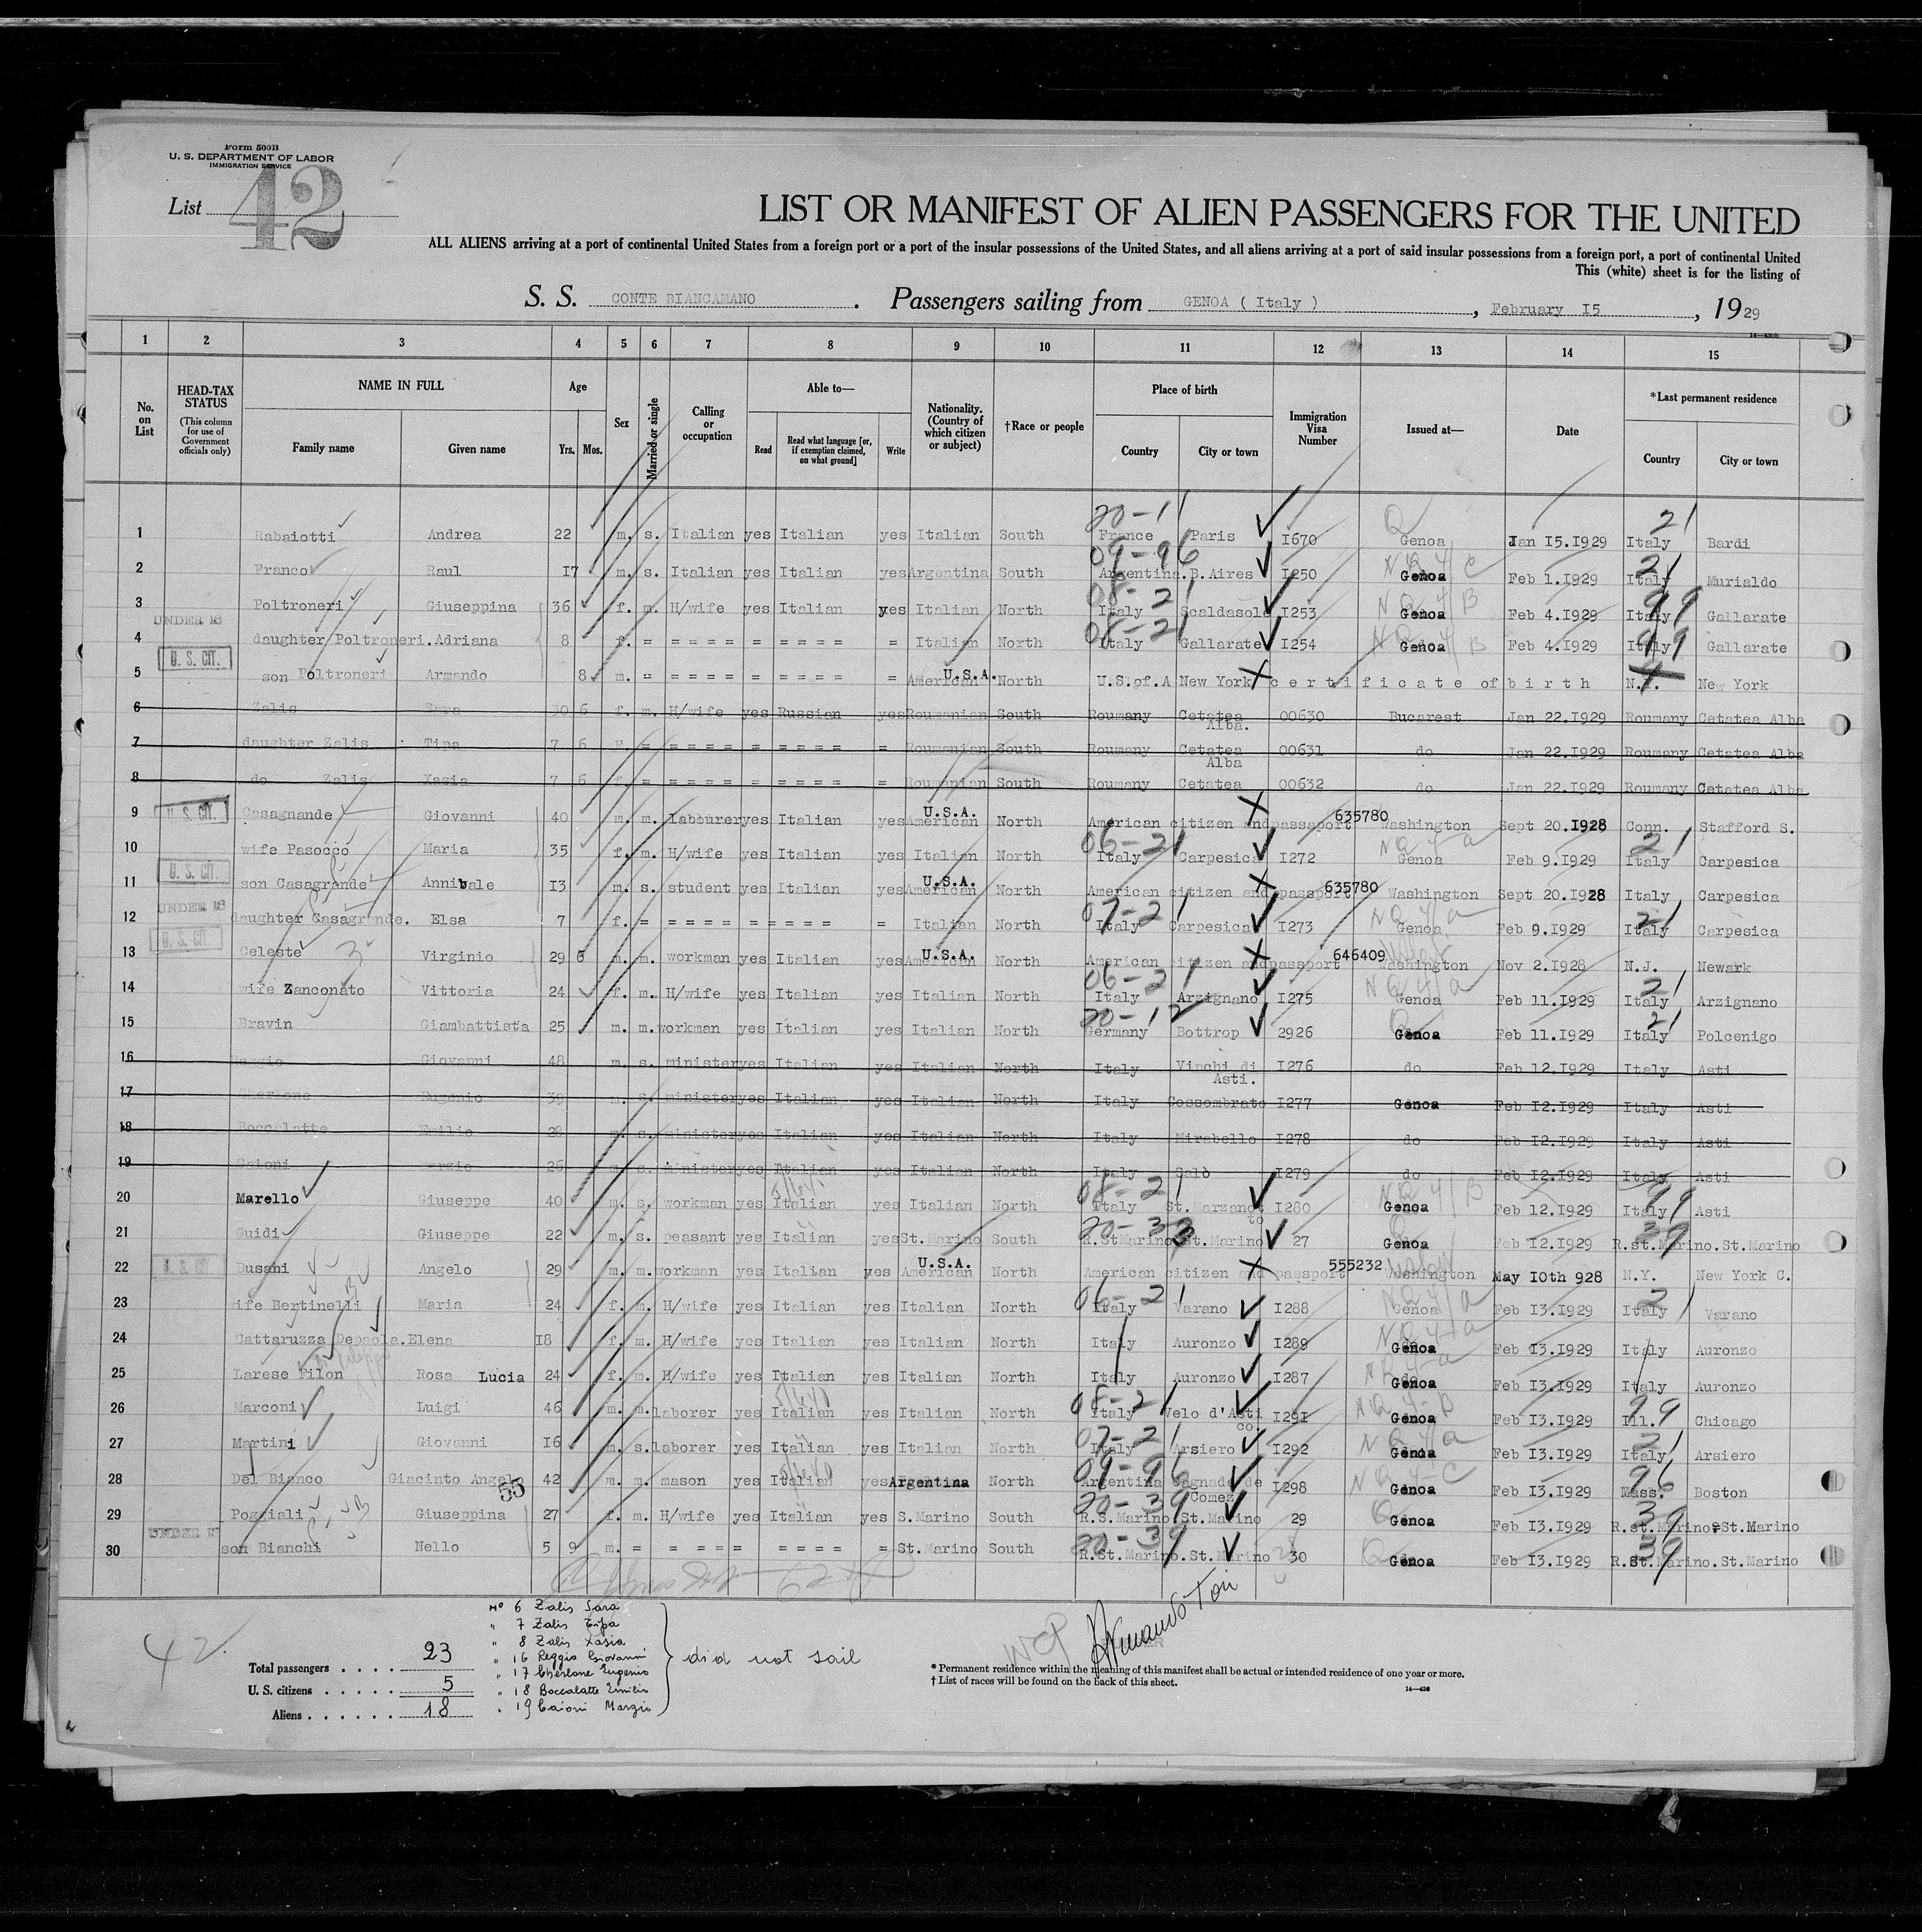 Form 500B
U. S. DEPARTMENT OF LABOR
IMMIGRATION SERVICE
List 42
LIST OR MANIFEST OF ALIEN PASSENGERS FOR THE UNITED
ALL ALIENS arriving at a port of continental United States from a foreign port or a port of the insular possessions of the United States, and all aliens arriving at a port of said insular possessions from a foreign port, a port of continental United
This (white) sheet is for the listing of
S. S. CONTE BIANCAMANO. Passengers sailing from GENOA ( Italy ), February I5, 1929
1 2 3 4 5 6 7 8 9 10 11 12 13 14 15
No. on List HEAD-TAX STATUS (This column for use of Government officials only) NAME IN FULL Family name Given name Age Yrs. Mos. Sex Married or single Calling or occupation Able to— Read Read what language [or, if exemption claimed, on what ground] Write Nationality. (Country of which citizen or subject) †Race or people Place of birth Country City or town Immigration Visa Number Issued at— Date *Last permanent residence Country City or town
1 Rabaiotti Andrea 22 m. s. Italian yes Italian yes Italian South 20-11 France Paris I670 Q Genoa Jan I5.I929 21 Italy Bardi
2 Franco Raul I7 m. s. Italian yes Italian yes Argentina South 09-96 Argentina.B.Aires I250 NQ4/C Genoa Feb 1.I929 21 Italy Murialdo
3 Poltroneri Giuseppina 36 f. m. H/wife yes Italian yes Italian North 08-21 Italy Scaldasole I253 NQ4/B Genoa Feb 4.I929 99 Italy Gallarate
4 UNDER 16 daughter Poltroneri.Adriana 8 f. = = = = = = = = = = = = Italian North 08-21 Italy Gallarate I254 NQ4/B Genoa Feb 4.I929 99 Italy Gallarate
5 U. S. CIT. son Poltroneri Armando 8 m. = = = = = = = = = = = = American U.S.A. North U.S.of.A New York certificate of birth N.Y. New York
6 Zalis Sara 30 6 f. m. H/wife yes Russian yes Roumanian South Roumany Cetatea Alba. 00630 Bucarest Jan 22.I929 Roumany Cetatea Alba
7 daughter Zalis Tipa 7 6 F. = = = = = = = = = = = = Roumanian South Roumany Cetatea Alba 00631 do Jan 22.I929 Roumany Cetatea Alba
8 do Zalis Xasia 7 6 f. = = = = = = = = = = = = Roumanian South Roumany Cetatea 00632 do Jan 22.I929 Roumany Cetatea Alba
9 U. S. CIT. Casagnande Giovanni 40 m. m. labourer yes Italian yes American U.S.A. North American citizen and passaport 635780 Washington Sept 20.1928 Conn. Stafford S.
10 wife Pasocco Maria 35 f. m. H/wife yes Italian yes Italian North 06-21 Italy Carpesica I272 NQ4-a Genoa Feb 9.I929 21 Italy Carpesica
11 U. S. CIT. son Casagrande Annibale I3 m. s. student yes Italian yes American U.S.A. North American citizen and passport 635780 Washington Sept 20.I928 Italy Carpesica
12 UNDER 16 daughter Casagrande. Elsa 7 f. = = = = = = = = = = = = Italian North 07-21 Italy Carpesica I273 NQ4/a Genoa Feb 9.I929 21 Italy Carpesica
13 U. S. CIT. Celeste Virginio 29 6 m. m. workman yes Italian yes American U.S.A. North American citizen and passport 646409 Washington Nov 2.I928 N.J. Newark
14 wife Zanconato Vittoria 24 f. m. H/wife yes Italian yes Italian North 06-21 Italy Arzignano I275 NQ4/a Genoa Feb 11.I929 21 Italy Arzignano
15 Bravin Giambattista 25 m. m. workman yes Italian yes Italian North 20-12 Germany Bottrop 2926 Genoa Feb 11.I929 21 Italy Polcenigo
16 Reggio Giovanni 48 m. s. minister yes Italian yes Italian North Italy Vinchi di Asti. I276 do Feb 12.I929 Italy Asti
17 Cherlone Eugenio 39 m. s. minister yes Italian yes Italian North Italy Cossombrato I277 Genoa Feb I2.I929 Italy Asti
18 Boccalatte Emilio 28 m. s. minister yes Italian yes Italian North Italy Mirabello I278 do Feb I2.I929 Italy Asti
19 Caioni Margio 26 m. s. minister yes Italian yes Italian North Italy Salò I279 do Feb I2.I929 Italy Asti
20 Marello Giuseppe 40 m. s. workman yes Italian yes Italian North 08-21 Italy St.Marzanotto I280 NQ4/B Genoa Feb 12.I929 99 Italy Asti
21 Guidi Giuseppe 22 m. s. peasant yes Italian yes St.Marino South 20-33 R.StMarino St.Marino 27 Genoa Feb I2.I929 39 R.st.Marino.St.Marino
22 U. S. CIT Busani Angelo 29 m. m. workman yes Italian yes American U.S.A. North American citizen and passport 555232 Washington May 10th 928 N.Y. New York C.
23 wife Bertinelli Maria 24 f. m. H/wife yes Italian yes Italian North 06-21 Italy Varano I288 NQ4/a Genoa Feb I3.I929 21 Italy Varano
24 Cattaruzza Depaola.Elena I8 f. m. H/wife yes Italian yes Italian North Italy Auronzo I289 NQ4-a Genoa Feb I3.I929 Italy Auronzo
25 Larese Filon Rosa Lucia 24 f. m. H/wife yes Italian yes Italian North Italy Auronzo I287 NQ4-a Genoa Feb I3.I929 Italy Auronzo
26 Marconi Luigi 46 m. m. laborer yes Italian yes Italian North 08-21 Italy Velo d'Asti co. I291 NQ4-B Genoa Feb I3.I929 99 Ill. Chicago
27 Martini Giovanni I6 m. s. laborer yes Italian yes Italian North 07-21 Italy Arsiero I292 NQ4/a Genoa Feb I3.I929 21 Italy Arsiero
28 Del Bianco Giacinto Angelo 55 42 m. m. mason yes Italian yes Argentina North 09-96 Argentina Cagnade de Gomez I298 NQ4-C Genoa Feb I3.I929 96 Mass. Boston
29 Poggiali Giuseppina 27 f. m. H/wife yes Italian yes S.Marino South 20-39 R.S.Marino St.Marino 29 Q Genoa Feb I3.I929 39 R.st.Marino.St.Marino
30 son Bianchi Nello 5 9 m. = = = = = = = = = = St.Marino South 20-39 R.St.Marino.St.Marino 30 Q Genoa Feb I3.I929 39 R.St.Marino.St.Marino
42.
Total passengers . . . . 23
U. S. citizens . . . . . 5
Aliens . . . . . . 18
No 6 Zalis Sara
" 7 Zalis Tipa
" 8 Zalis Xasia
" 16 Reggio Giovanni
" 17 Cherlone Eugenio
" 18 Boccalatte Emilio
" 19 Caioni Marzio
did not sail
* Permanent residence within the meaning of this manifest shall be actual or intended residence of one year or more.
† List of races will be found on the back of this sheet.